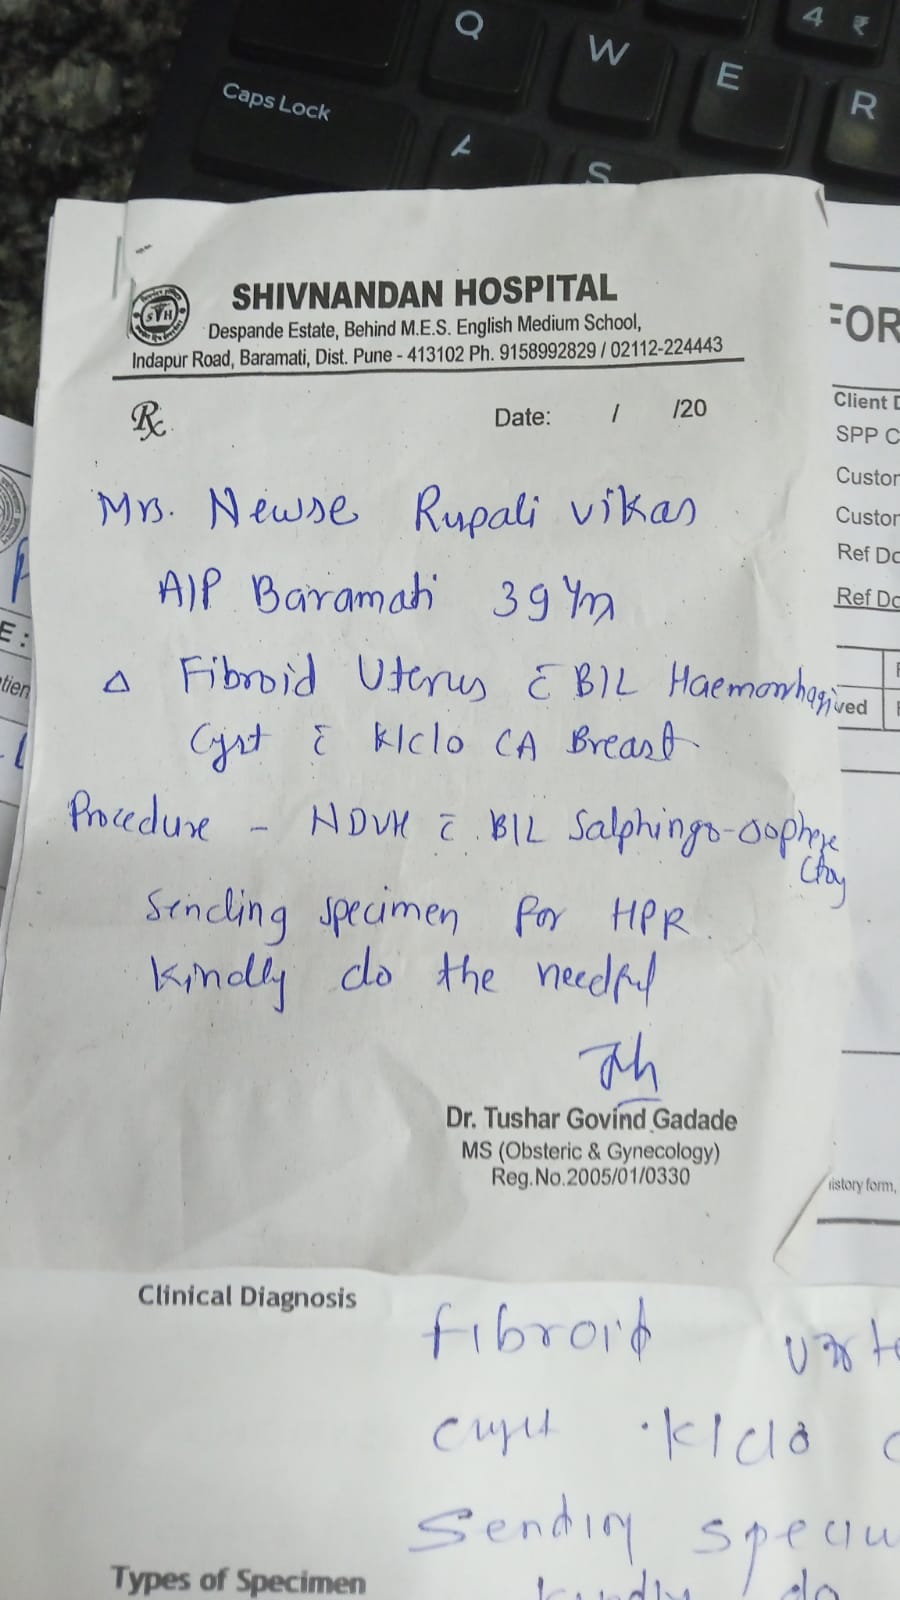 Q W E R 4 ₹
Caps Lock A S
SHIVNANDAN HOSPITAL
Despande Estate, Behind M.E.S. English Medium School,
Indapur Road, Baramati, Dist. Pune - 413102 Ph. 9158992829 / 02112-224443
Rx Date: / /20
Mrs. Newse Rupali vikas
A/P Baramati 39 Yrs
Δ Fibroid Uterus c̄ B/L Haemorrhagic
Cyst c̄ K/c/o CA Breast
Procedure - NDVH c̄ B/L Salphingo-oophere
ctoy
Sending specimen for HPR.
Kindly do the needful
Dr. Tushar Govind Gadade
MS (Obsteric & Gynecology)
Reg.No.2005/01/0330
FOR
Client D
SPP C
Custor
Custor
Ref Do
Ref Do
ved
istory form,
E:
tien
Clinical Diagnosis
fibroid
cyst K/c/o
Sending speciu
Types of Specimen
kindly do